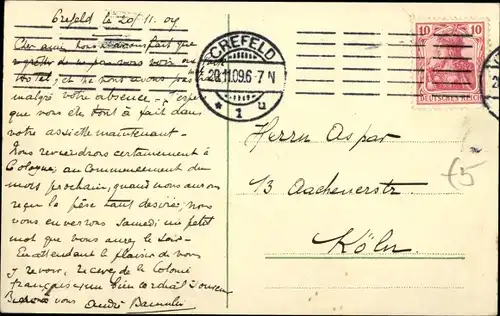 Crefeld le 20/11.09
Cher ami, nous
regrets de ne pas vous voir
hotel; et ne nous avons pas
malgré votre absence. J'espère
que vous êtes tout à fait dans
votre assiette maintenant.
Nous reviendrons certainement à
Cologne, au commencement du
mois prochain, quand nous aurons
reçu la pièce tant désirée, nous
vous enverrons Samedi un petit
mot que vous aurez le soir.
En attendant le plaisir de vous
revoir, recevez de la Colonie
française, un bien cordial
vous André
CREFELD
20.11.09.6-7N
* 1 u
10 10
DEUTSCHES REICH
Herrn Aspar
13 Aachenerstr.
Köln
£5